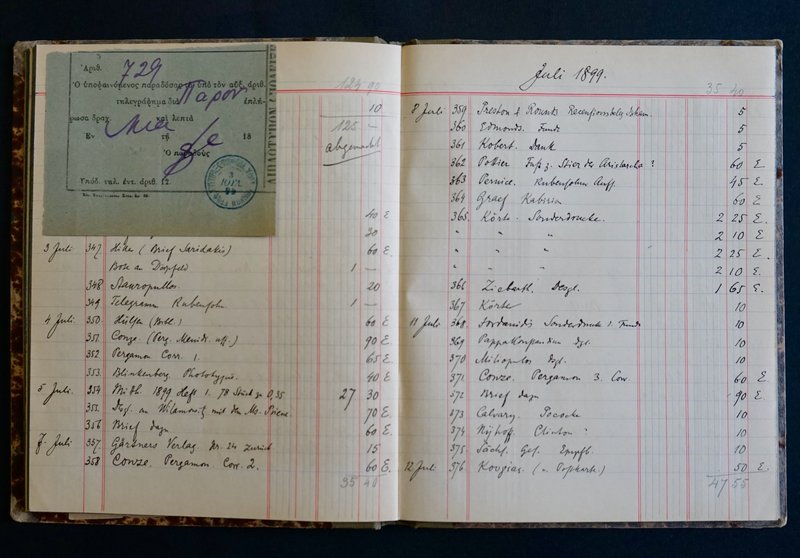 Ἀριθ. 729
Ὁ ὑποφαινόμενος παραδόσας ὑπὸ τὸν αὐξ. ἀριθ.
τηλεγράφημα διὰ Πάρον ἐπλή-
ρωσα δραχ. μία καὶ λεπτὰ
Ἐν τῇ 18
Ὁ
Ὑπόδ. τηλ. ἐντ. ἀριθ. 12.
124 90
10
125 —
abgemacht
40 E
20
3 Juli 347. Hille (Brief Saridakis) 60 E.
Bote an Dörpfeld 1 —
348. Stauropullos. 20
349. Telegramm Rubensohn 1 —
4 Juli. 350. Hülsen (Bibl.) 60 E
351. Conze (Verg. Menid. uff.) 90 E
352. Pergamon Corr. 1. 65 E
353. Blinkenberg. Phototypie. 40 E
5 Juli. 354. Mitth. 1899 Heft 1. 78 Stück zu 0,35 27 30
355. Dsgl. an Wilamowitz mit den Ms. Priene. 70 E
356. Brief dazu 60 E
7 Juli 357. Gärtners Verlag. Nr. 24 zurück 15
358. Conze. Pergamon Corr. 2. 60 E
35 40
Juli 1899.
35 40
8 Juli 359 Preston & Rounds 5
360 Edmonds. Funde 5
361 Robert. Dank 5
362 Pottier 60 E.
363 Pernice. Rubensohn Aufs. 45 E.
364 Graef Kabirion 60 E
365 Körte. Sonderdrucke. 2 25 E.
" " " 2 10 E
" " " 2 25 E.
" " " 2 10 E.
366 Ziebarth Desgl. 1 65 E.
367 Körte 10
11 Juli 368 Jordanidis Sonderdruck u. Funde 10
369 Pappakonstantinu dgl. 10
370 Miliopulos dgl. 10
371 Conze. Pergamon 3. Corr. 60 E
372 Brief dazu 90 E.
373 Calvary. Pococke 10
374 Nijhoff. Clinton " 10
375 Sächs. Ges. Empfb. 10
12 Juli 376 Kougias. 50 E.
47 55